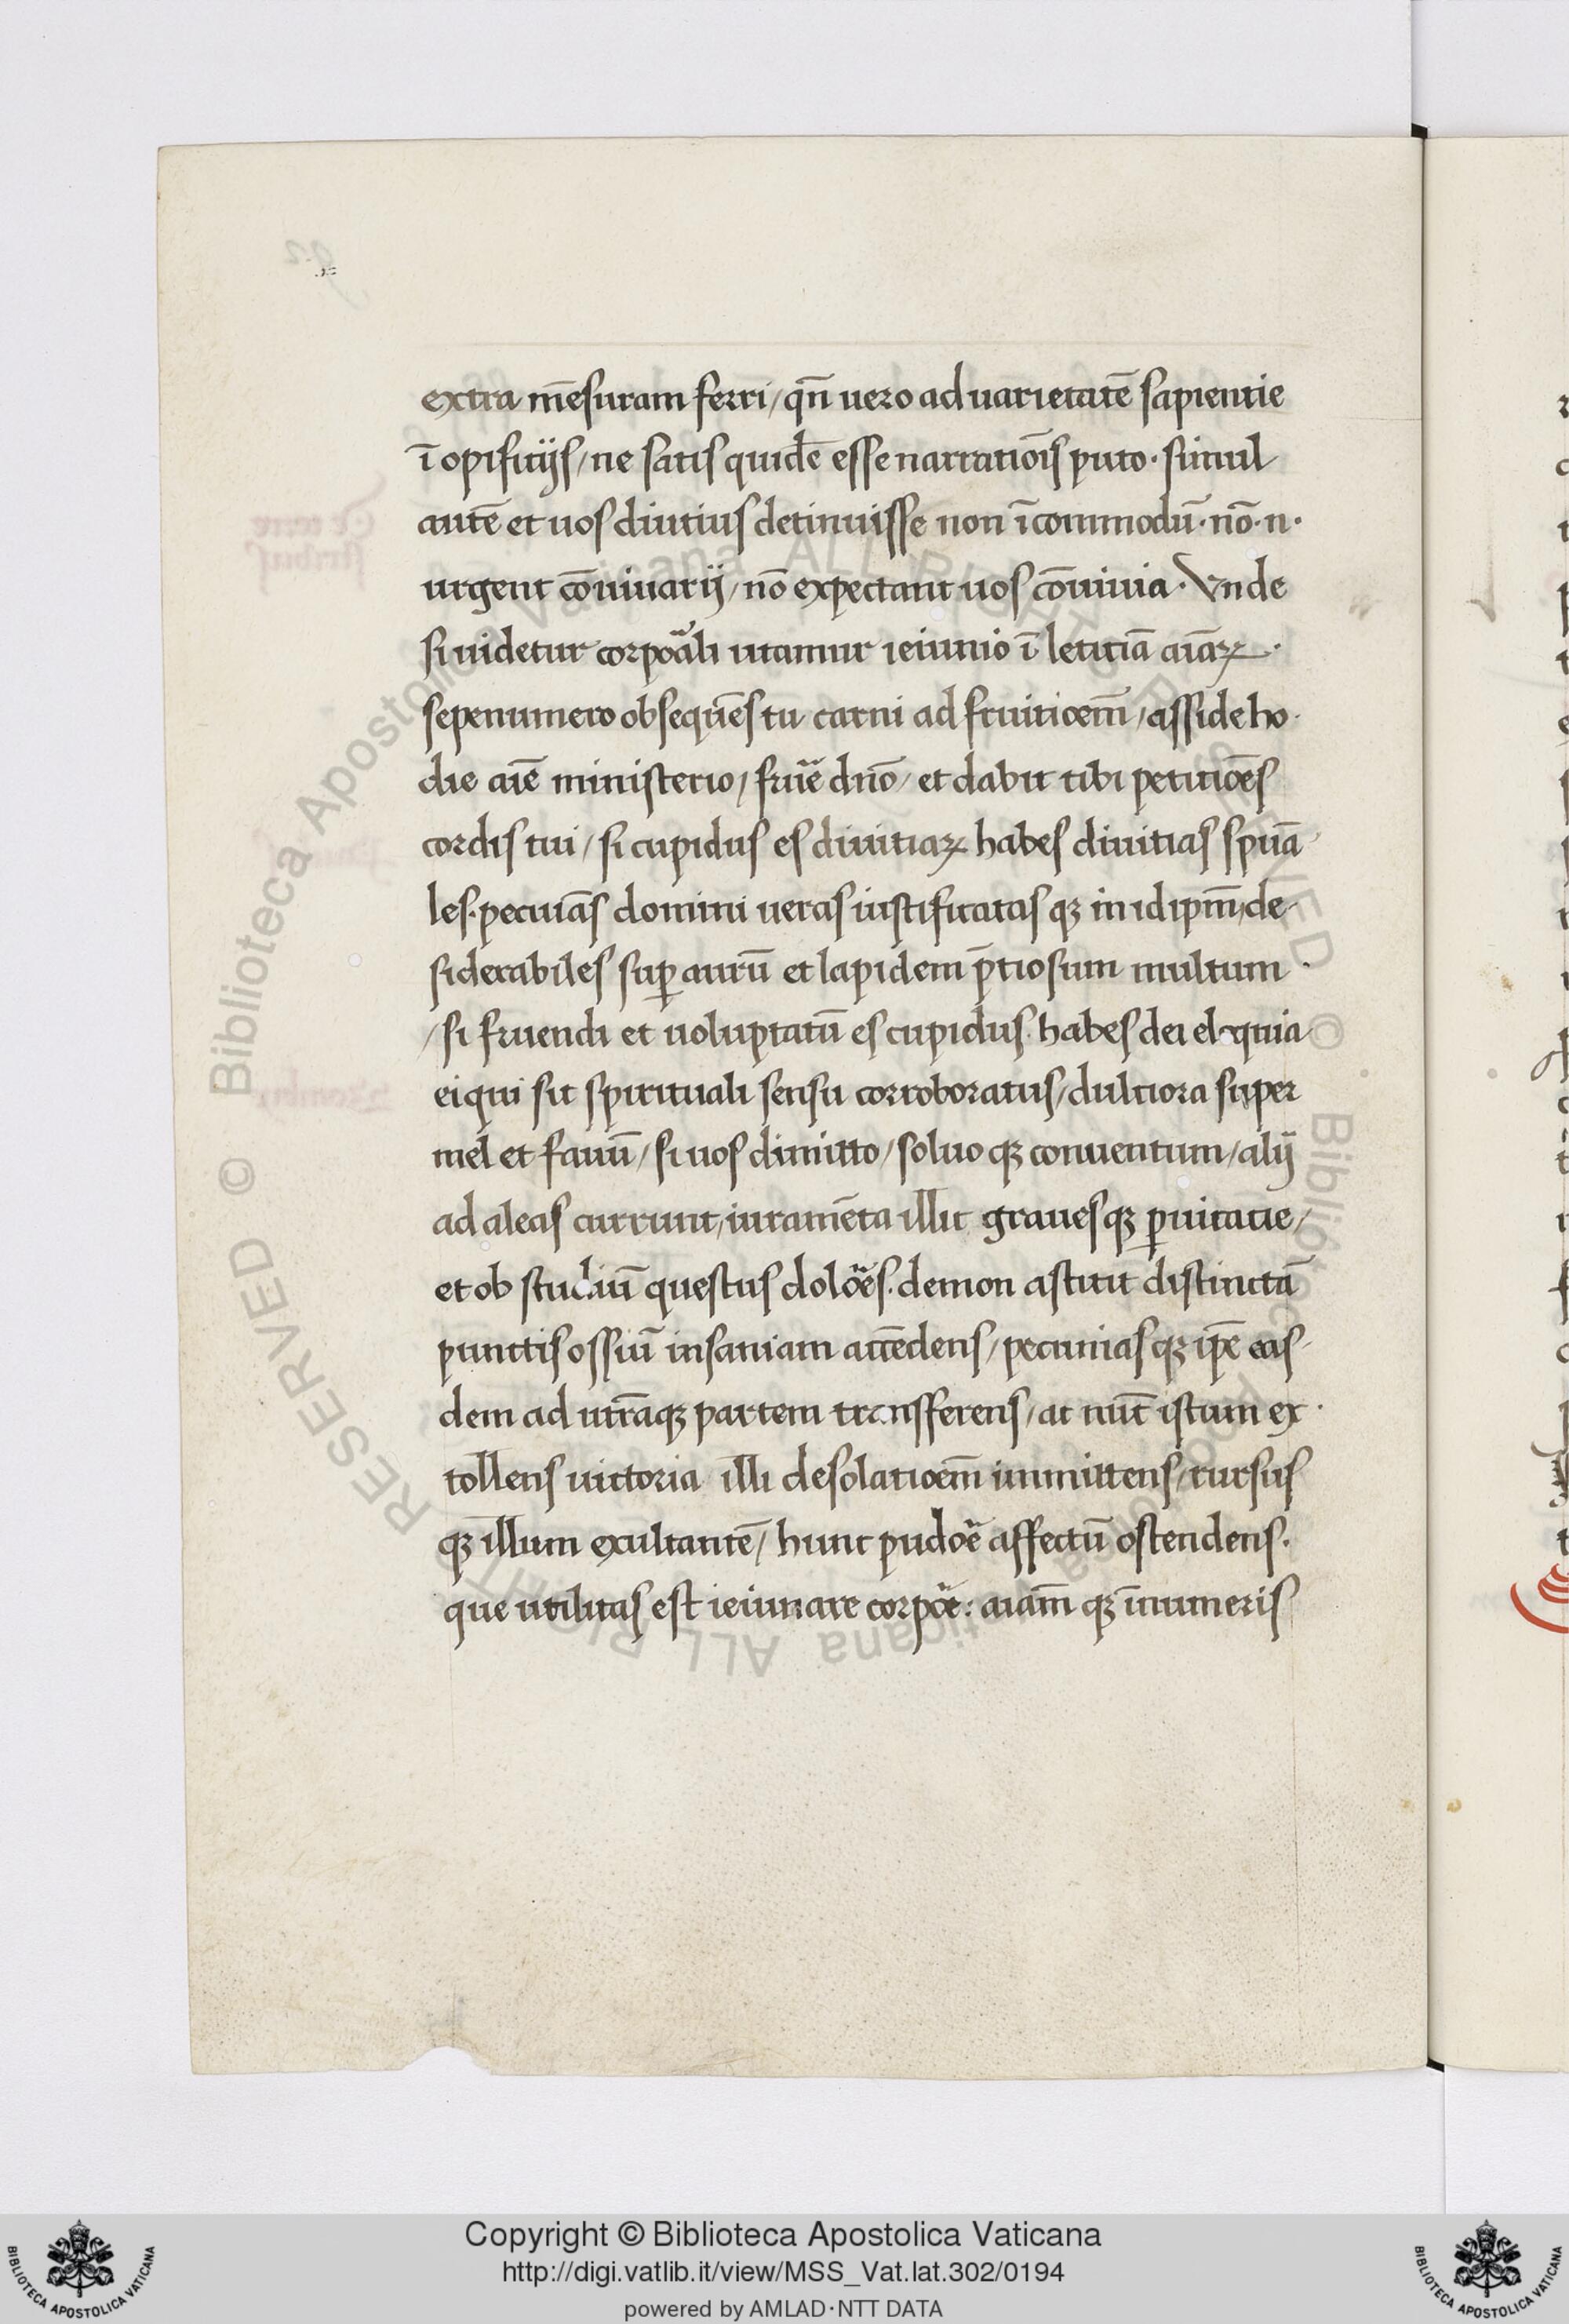 extra mēsuram ferri / qn̄ uero ad uarietatē sapientie
ī opificijs / ne satis quidē esse narratiōis puto · simul
autē et uos diutius detinuisse non īcommodū · nō · n ·
urgent cōuiuarij / nō expectant uos cōuiuia · Vnde
si uidetur corpoāli utamur ieiunio ī letitiā aīaꝝ ·
sepenumero obsequēs tu carni ad fruitioem̄ / asside ho
die aīe ministerio / fruē dn̄o / et dabit tibi petitiōes
cordis tui / si cupidus es diuitiaꝝ habes diuitias spūa
les · pecuīas domini ueras iustificatas qꝫ in idipm̄ / de
siderabiles suꝑ aurū et lapidem p̄tiosum multum ·
/ si fruendi et uoluptatū es cupidus · habes dei eloquia
ei qui sit spirituali sensu corroboratus / dulciora super
mel et fauū / si uos dimitto / soluo qꝫ conuentum / alij
ad aleas currunt / iuramēta illic grauesqꝫ ꝑuicatie /
et ob studiū questus doloēs · demon astitit distinctā
punctis ossiū insaniam accēdens / pecuniasqꝫ ip̄e eas
dem ad utrāqꝫ partem transfferens / at nūc istum ex ·
tollens uictoria illi desolatioem̄ immittens / rursus
qꝫ illum exultantē / hunc pudoē affectū ostendens ·
que utilitas est ieiunare corpoē : aīam̄ qꝫ īnumeris
Copyright © Biblioteca Apostolica Vaticana
http://digi.vatlib.it/view/MSS_Vat.lat.302/0194
powered by AMLAD·NTT DATA
BIBLIOTECA APOSTOLICA VATICANA
BIBLIOTECA APOSTOLICA VATICANA